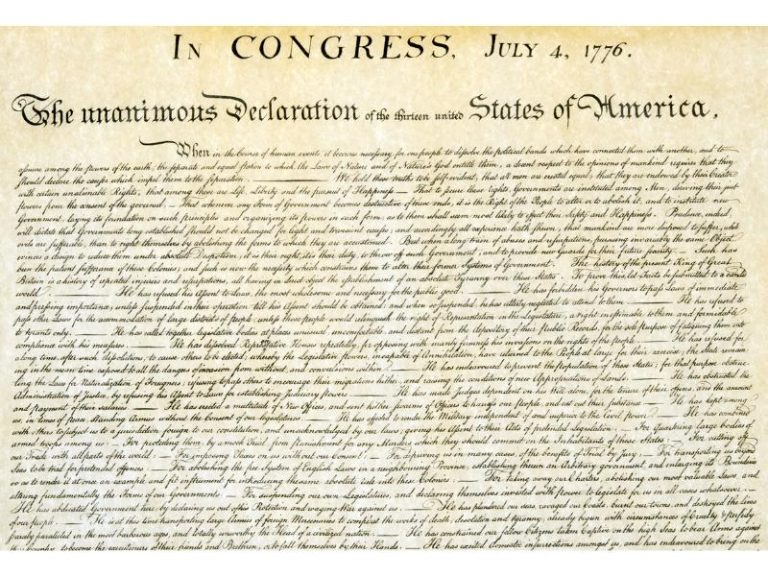 IN CONGRESS, JULY 4, 1776.
The unanimous Declaration of the thirteen united States of America,
When in the Course of human events it becomes necessary for one people to dissolve the political bands which have connected them with another, and to
assume among the powers of the earth, the separate and equal station to which the Laws of Nature and of Nature's God entitle them, a decent respect to the opinions of mankind requires that they
should declare the causes which impel them to the separation. — We hold these truths to be self-evident, that all men are created equal, that they are endowed by their Creator
with certain unalienable Rights, that among these are Life, Liberty and the pursuit of Happiness — That to secure these rights, Governments are instituted among Men, deriving their just
powers from the consent of the governed, — That whenever any Form of Government becomes destructive of these ends, it is the Right of the People to alter or to abolish it, and to institute new
Government, laying its foundation on such principles and organizing its powers in such form, as to them shall seem most likely to effect their Safety and Happiness. Prudence, indeed,
will dictate that Governments long established should not be changed for light and transient causes; and accordingly all experience hath shewn, that mankind are more disposed to suffer, while
evils are sufferable, than to right themselves by abolishing the forms to which they are accustomed. But when a long train of abuses and usurpations, pursuing invariably the same Object
evinces a design to reduce them under absolute Despotism, it is their right, it is their duty, to throw off such Government, and to provide new Guards for their future security. — Such has
been the patient sufferance of these Colonies; and such is now the necessity which constrains them to alter their former Systems of Government. The history of the present King of Great
Britain is a history of repeated injuries and usurpations, all having in direct object the establishment of an absolute Tyranny over these States. To prove this let Facts be submitted to a candid
world. — He has refused his Assent to Laws, the most wholesome and necessary for the public good. — He has forbidden his Governors to pass Laws of immediate
and pressing importance, unless suspended in their operation till his Assent should be obtained; and when so suspended, he has utterly neglected to attend to them. — He has refused to
pass other Laws for the accommodation of large districts of people, unless those people would relinquish the right of Representation in the Legislature, a right inestimable to them and formidable
to tyrants only. — He has called together legislative bodies at places unusual, uncomfortable, and distant from the depository of their Public Records, for the sole purpose of fatiguing them into
compliance with his measures. — He has dissolved Representative Houses repeatedly, for opposing with manly firmness his invasions on the rights of the people. — He has refused for
a long time, after such dissolutions, to cause others to be elected; whereby the Legislative powers, incapable of Annihilation, have returned to the People at large for their exercise; the State remain-
ing in the mean time exposed to all the dangers of invasion from without, and convulsions within. — He has endeavoured to prevent the population of these States; for that purpose obstruc-
ting the Laws for Naturalization of Foreigners; refusing to pass others to encourage their migrations hither, and raising the conditions of new Appropriations of Lands. — He has obstructed the
Administration of Justice, by refusing his Assent to Laws for establishing Judiciary powers. — He has made Judges dependent on his Will alone, for the tenure of their offices, and the amount
and payment of their salaries. — He has erected a multitude of New Offices, and sent hither swarms of Officers to harrass our people, and eat out their substance. — He has kept among
us, in times of peace, Standing Armies without the Consent of our legislatures. — He has affected to render the Military independent of and superior to the Civil power. — He has combined
with others to subject us to a jurisdiction foreign to our constitution, and unacknowledged by our laws; giving his Assent to their Acts of pretended Legislation: — For Quartering large bodies of
armed troops among us: — For protecting them, by a mock Trial, from punishment for any Murders which they should commit on the Inhabitants of these States: — For cutting off
our Trade with all parts of the world: — For imposing Taxes on us without our Consent: — For depriving us in many cases, of the benefits of Trial by Jury: — For transporting us beyond
Seas to be tried for pretended offences: — For abolishing the free System of English Laws in a neighbouring Province, establishing therein an Arbitrary government, and enlarging its Boundaries
so as to render it at once an example and fit instrument for introducing the same absolute rule into these Colonies: — For taking away our Charters, abolishing our most valuable Laws, and
altering fundamentally the Forms of our Governments: — For suspending our own Legislatures, and declaring themselves invested with power to legislate for us in all cases whatsoever. —
He has abdicated Government here, by declaring us out of his Protection and waging War against us. — He has plundered our seas, ravaged our Coasts, burnt our towns, and destroyed the lives
of our people. — He is at this time transporting large Armies of foreign Mercenaries to compleat the works of death, desolation and tyranny, already begun with circumstances of Cruelty & perfidy
scarcely paralleled in the most barbarous ages, and totally unworthy the Head of a civilized nation. — He has constrained our fellow Citizens taken Captive on the high Seas to bear Arms against
their Country, to become the executioners of their friends and Brethren, or to fall themselves by their Hands. — He has excited domestic insurrections amongst us, and has endeavoured to bring on the